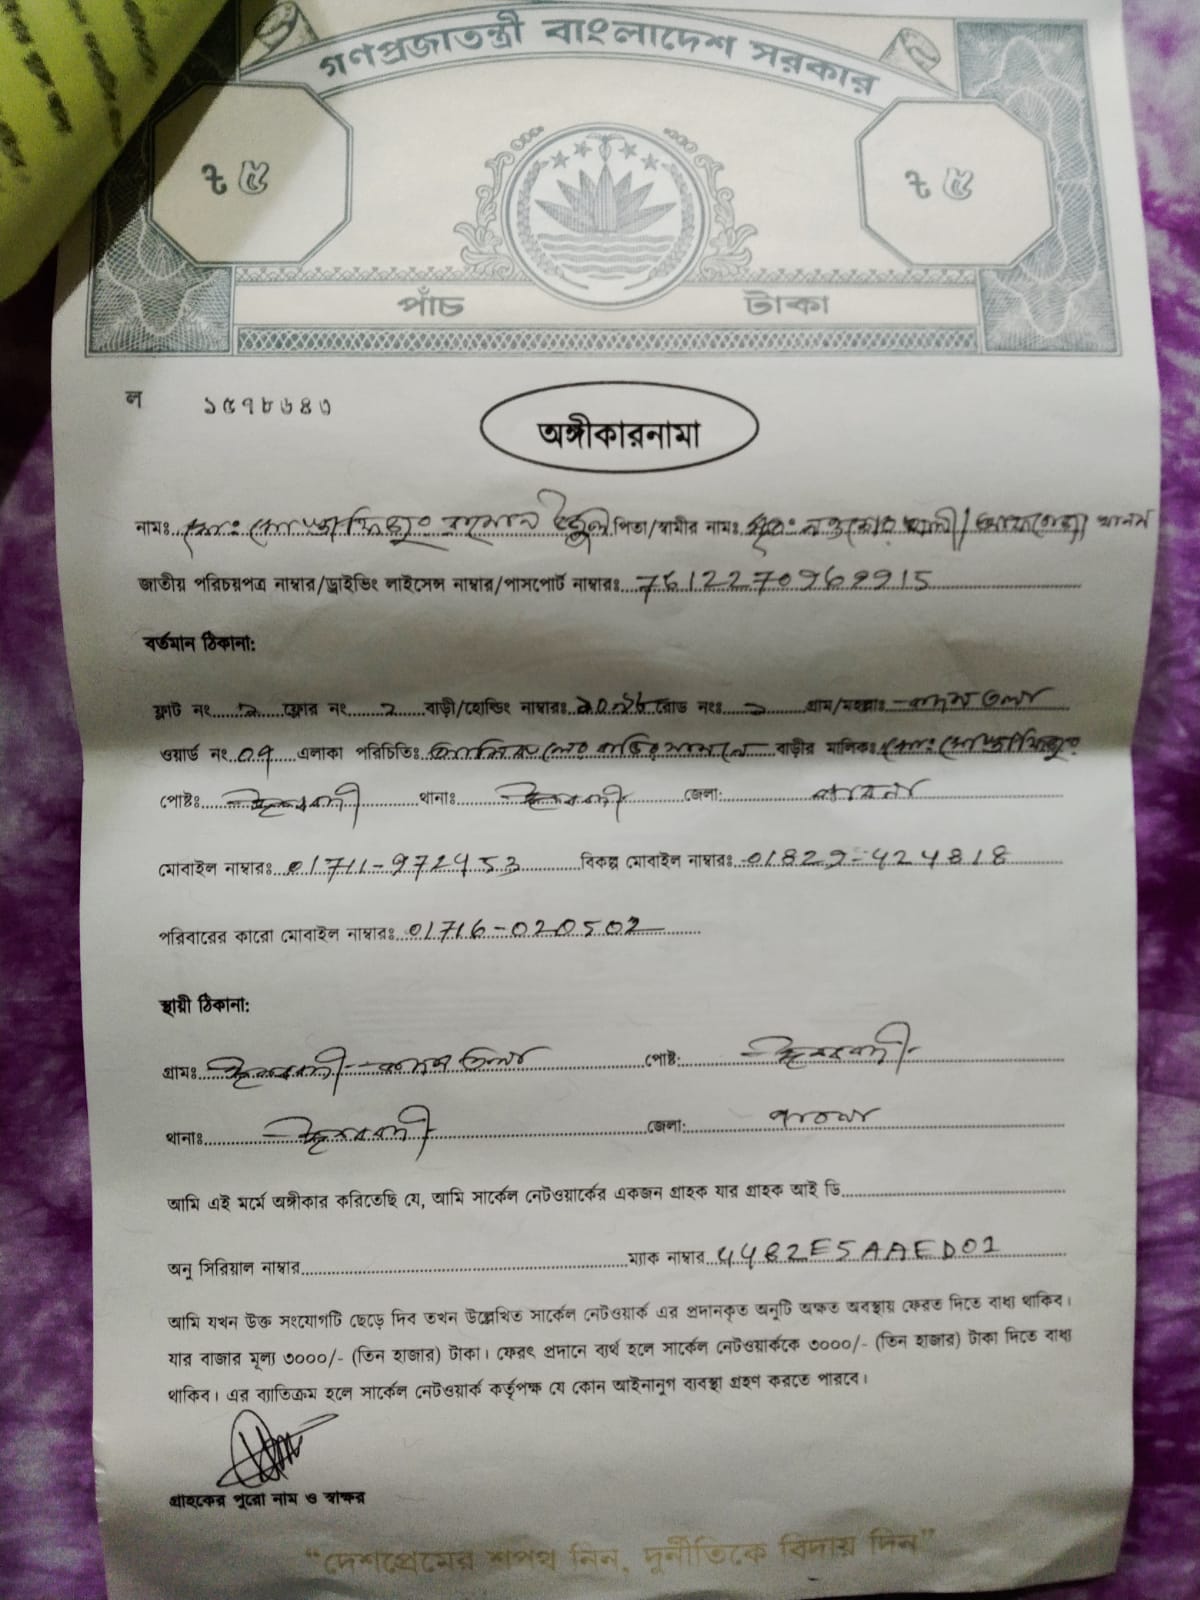 গণপ্রজাতন্ত্রী বাংলাদেশ সরকার
৳ ৫ ৳ ৫
পাঁচ টাকা
ল ১৫৭৮৬৪৩
অঙ্গীকারনামা
নামঃ মোঃ মোস্তাফিজুর রহমান পিতা/স্বামীর নামঃ মৃতঃ
জাতীয় পরিচয়পত্র নাম্বার/ড্রাইভিং লাইসেন্স নাম্বার/পাসপোর্ট নাম্বারঃ 7612270969915
বর্তমান ঠিকানা:
ফ্লাট নং ফ্লোর নং ২ বাড়ী/হোল্ডিং নাম্বারঃ রোড নংঃ গ্রাম/মহল্লাঃ
ওয়ার্ড নং 09 এলাকা পরিচিতিঃ বাড়ির সামনে বাড়ীর মালিকঃ মোঃ মোস্তাফিজুর
পোষ্টঃ ঈশ্বরদী থানাঃ ঈশ্বরদী জেলা: পাবনা
মোবাইল নাম্বারঃ 01711-972953 বিকল্প মোবাইল নাম্বারঃ 01829-424818
পরিবারের কারো মোবাইল নাম্বারঃ 01716-020502
স্থায়ী ঠিকানা:
গ্রামঃ ঈশ্বরদী পোষ্ট: ঈশ্বরদী
থানাঃ ঈশ্বরদী জেলা: পাবনা
আমি এই মর্মে অঙ্গীকার করিতেছি যে, আমি সার্কেল নেটওয়ার্কের একজন গ্রাহক যার গ্রাহক আই ডি
অনু সিরিয়াল নাম্বার ম্যাক নাম্বার 4482E5AAED01
আমি যখন উক্ত সংযোগটি ছেড়ে দিব তখন উল্লেখিত সার্কেল নেটওয়ার্ক এর প্রদানকৃত অনুটি অক্ষত অবস্থায় ফেরত দিতে বাধ্য থাকিব।
যার বাজার মূল্য ৩০০০/- (তিন হাজার) টাকা। ফেরৎ প্রদানে ব্যর্থ হলে সার্কেল নেটওয়ার্ককে ৩০০০/- (তিন হাজার) টাকা দিতে বাধ্য
থাকিব। এর ব্যতিক্রম হলে সার্কেল নেটওয়ার্ক কর্তৃপক্ষ যে কোন আইনানুগ ব্যবস্থা গ্রহণ করতে পারবে।
গ্রাহকের পুরো নাম ও স্বাক্ষর
“দেশপ্রেমের শপথ নিন, দুর্নীতিকে বিদায় দিন”